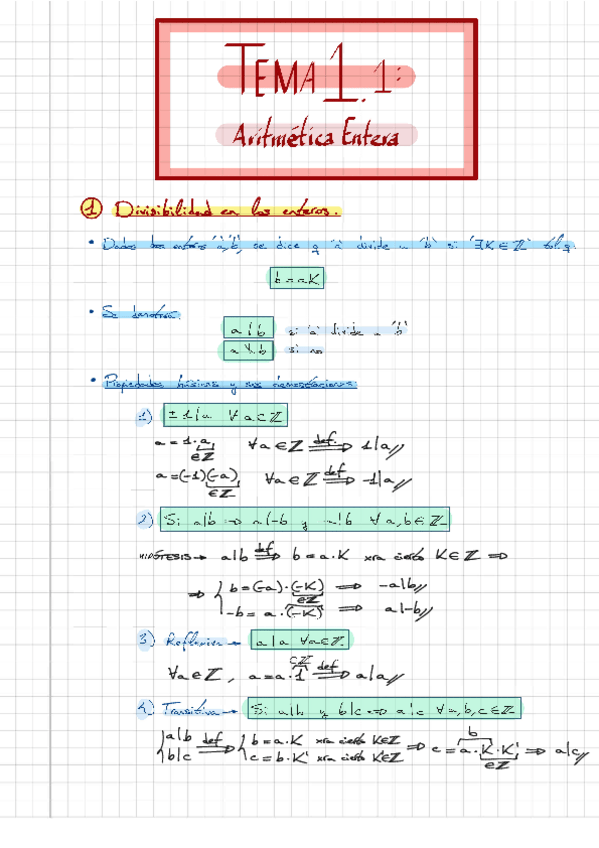 TEMA 1.1:
Aritmética Entera
① Divisibilidad en los enteros.
• Dados dos enteros 'a', 'b', se dice q 'a' divide a 'b' si '∃K∈ℤ' tal q
b = aK
• Se denotra:
a | b si 'a' divide a 'b'
a ∤ b si no
• Propiedades básicas y sus demostraciones:
1) ±1|a ∀a∈ℤ
a = 1·a, ∀a∈ℤ def. ⟹ 1|a//
∈ℤ
a = (-1)(-a), ∀a∈ℤ def ⟹ -1|a//
∈ℤ
2) Si a|b ⟹ a|-b y -a|b ∀a,b∈ℤ
HIPÓTESIS → a|b def ⟹ b = a·K xra cierto K∈ℤ ⟹
⟹ { b = (-a)·(-K) ⟹ -a|b//
∈ℤ
-b = a·(-K) ⟹ a|-b//
3) Reflexiva → a|a ∀a∈ℤ
∈ℤ
∀a∈ℤ, a = a·1 def ⟹ a|a//
4) Transitiva → Si a|b y b|c ⟹ a|c ∀a,b,c∈ℤ
b
{ a|b def ⟹ { b = a·K xra cierto K∈ℤ ⟹ c = a·K·K' ⟹ a|c//
b|c c = b·K' xra cierto K'∈ℤ ∈ℤ